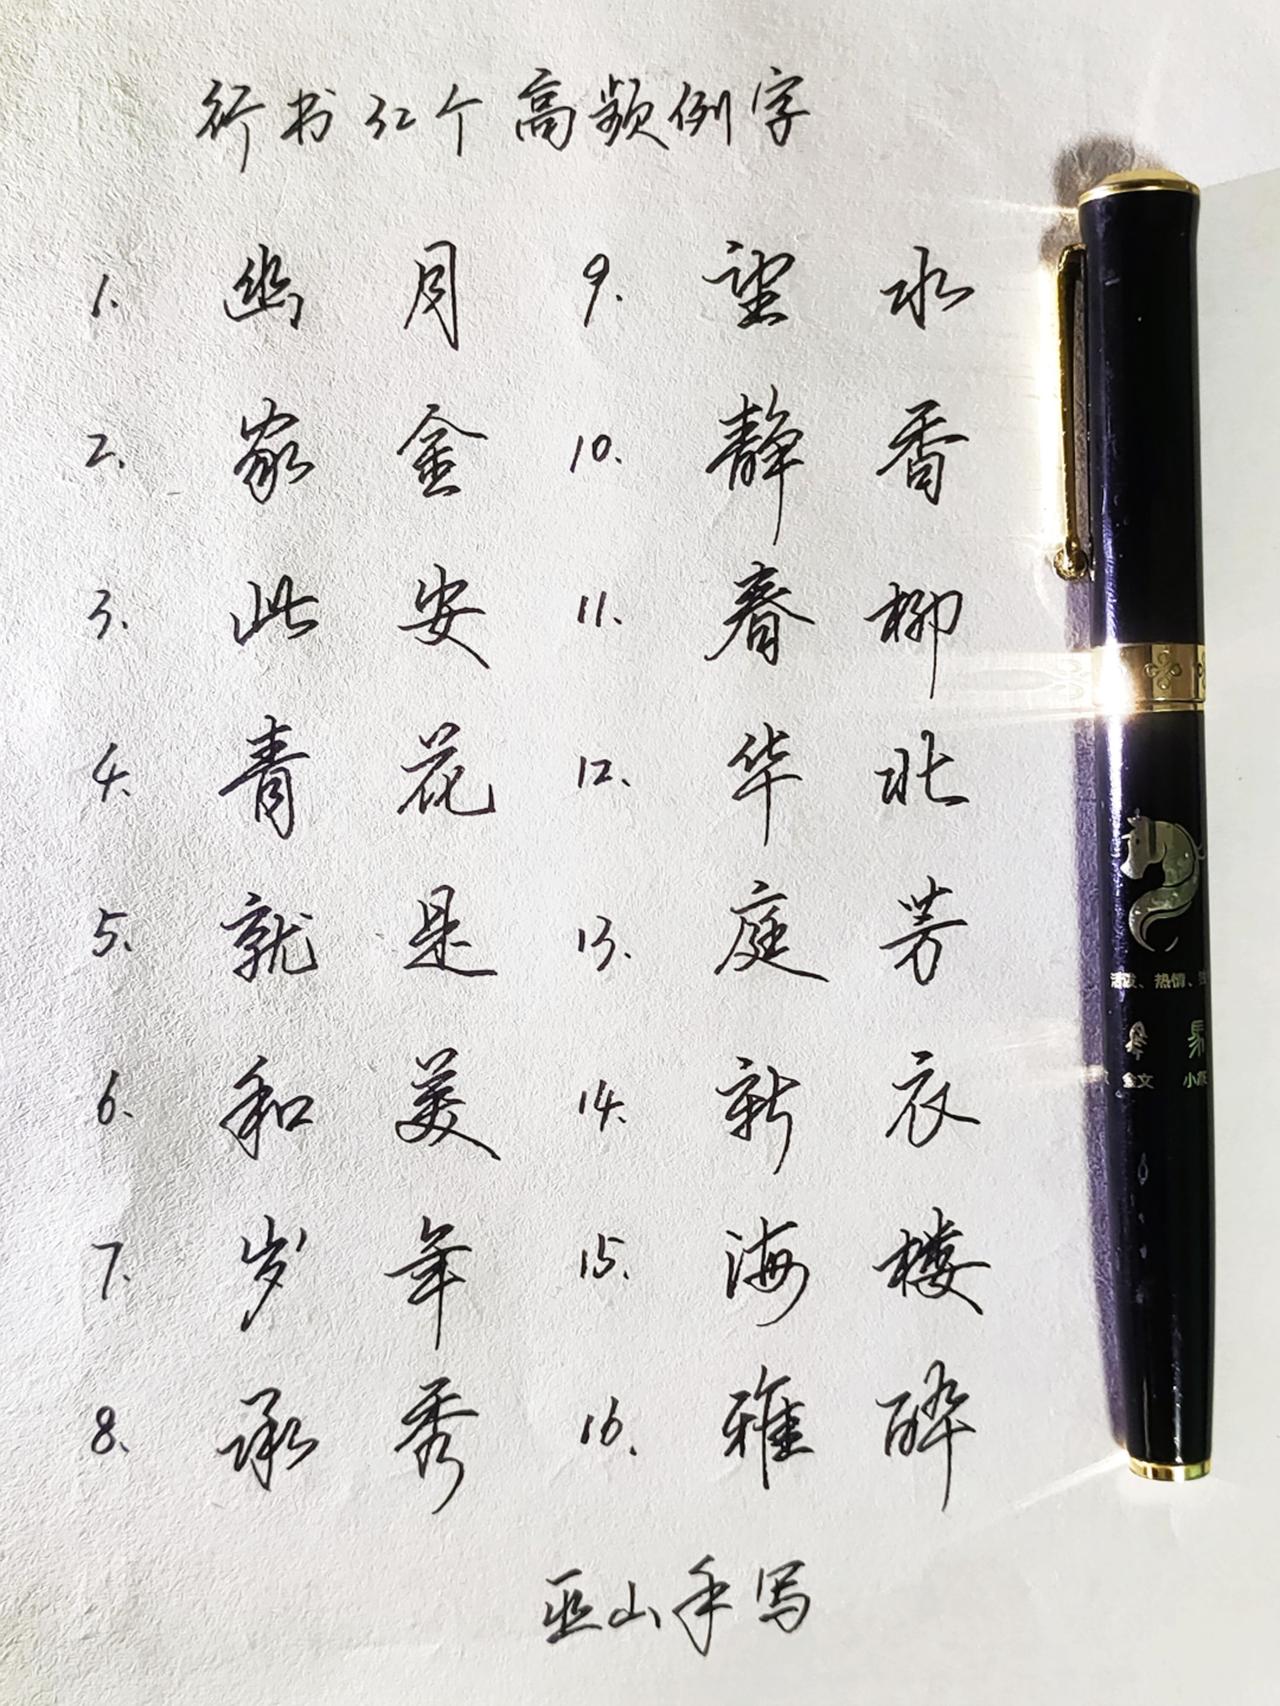 行书32个高频例字
1. 幽 月 9. 望 水
2. 家 金 10. 静 香
3. 此 安 11. 春 柳
4. 青 花 12. 华 北
5. 就 是 13. 庭 芳
6. 和 美 14. 新 衣
7. 岁 年 15. 海 楼
8. 承 秀 16. 雅 醉
巫山手写
活泼、热情、
金文 小篆